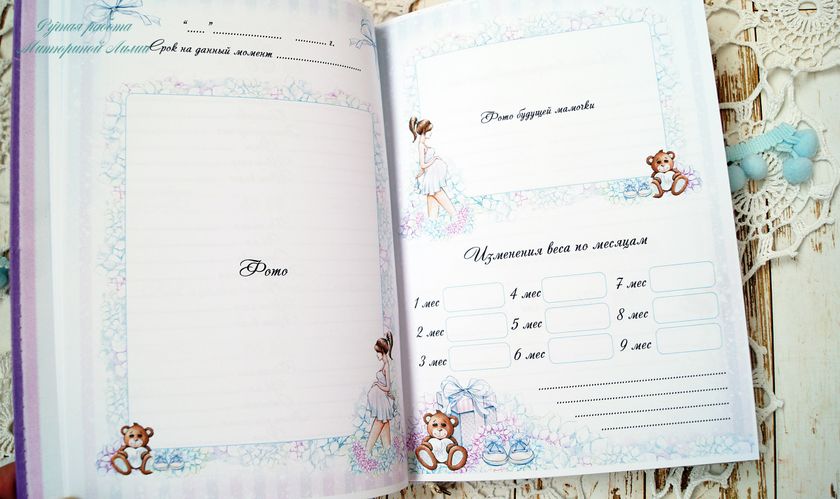 Ручная работа
Митюриной Лилии
“.....” ..................... ......... г.
Срок на данный момент ........................
Фото
Фото будущей мамочки
Изменения веса по месяцам
1 мес
4 мес
7 мес
2 мес
5 мес
8 мес
3 мес
6 мес
9 мес